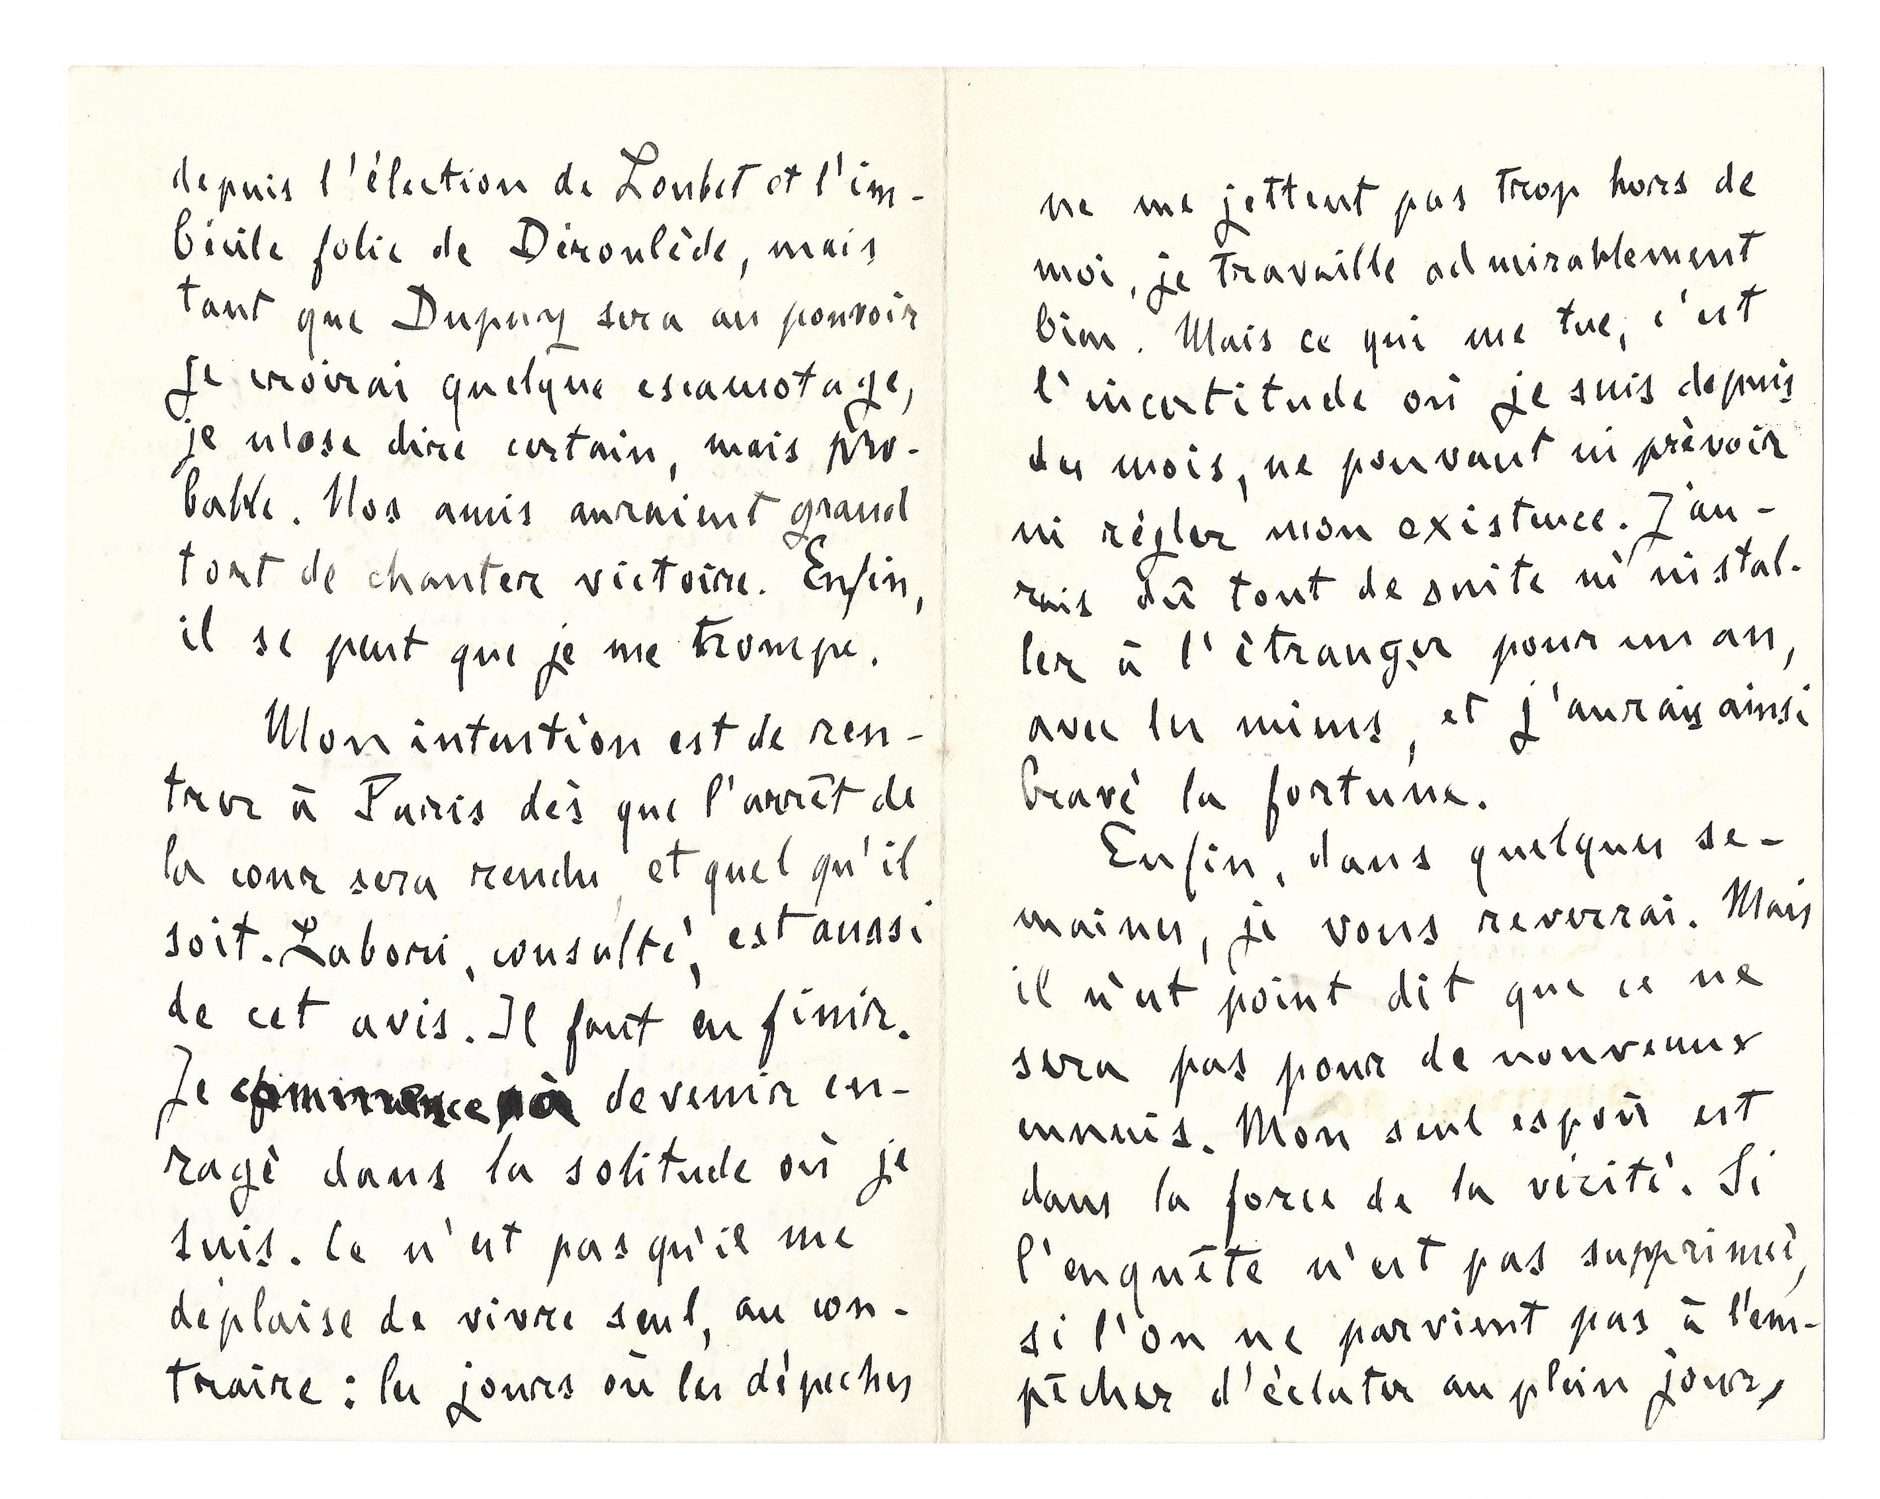 depuis l'élection de Loubet et l'im-
bécile folie de Déroulède, mais
tant que Dupuy sera au pouvoir
je croirai quelque escamotage,
je n'ose dire certain, mais pro-
bable. Nos amis auraient grand
tort de chanter victoire. Enfin,
il se peut que je me trompe.
Mon intention est de ren-
trer à Paris dès que l'arrêt de
la cour sera rendu, et quel qu'il
soit. Labori, consulté, est aussi
de cet avis. Il faut en finir.
Je commence à devenir en-
ragé dans la solitude où je
suis. Ce n'est pas qu'il me
déplaise de vivre seul, au con-
traire : les jours où les dépêches
ne me jettent pas trop hors de
moi, je travaille admirablement
bien. Mais ce qui me tue, c'est
l'incertitude où je suis depuis
des mois, ne pouvant ni prévoir
ni régler mon existence. J'au-
rais dû tout de suite m'instal-
ler à l'étranger pour un an,
avec les miens, et j'aurais ainsi
bravé la fortune.
Enfin, dans quelques se-
maines, je vous reverrai. Mais
il n'est point dit que ce ne
sera pas pour de nouveaux
ennuis. Mon seul espoir est
dans la force de la vérité. Si
l'enquête n'est pas supprimée,
si l'on ne parvient pas à l'em-
pêcher d'éclater au plein jour,